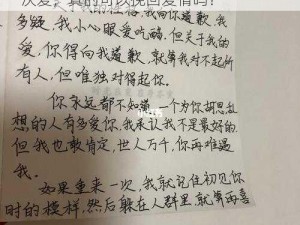 次爱，真的可以挽回爱情吗？
的性格，我向你道歉，我
多疑，我小心眼爱吃醋，但关于我的
爱，你得向我道歉，就算我对不起所
有人，但唯独对得起你。
你永远都不知道一个为你胡思乱
想的人有多爱你，我承认我不是最好的
但我也敢肯定，世人万千，你再难遇
我。
如果重来一次，我就记住初见你
时的模样，然后躲在人群里，就算再喜